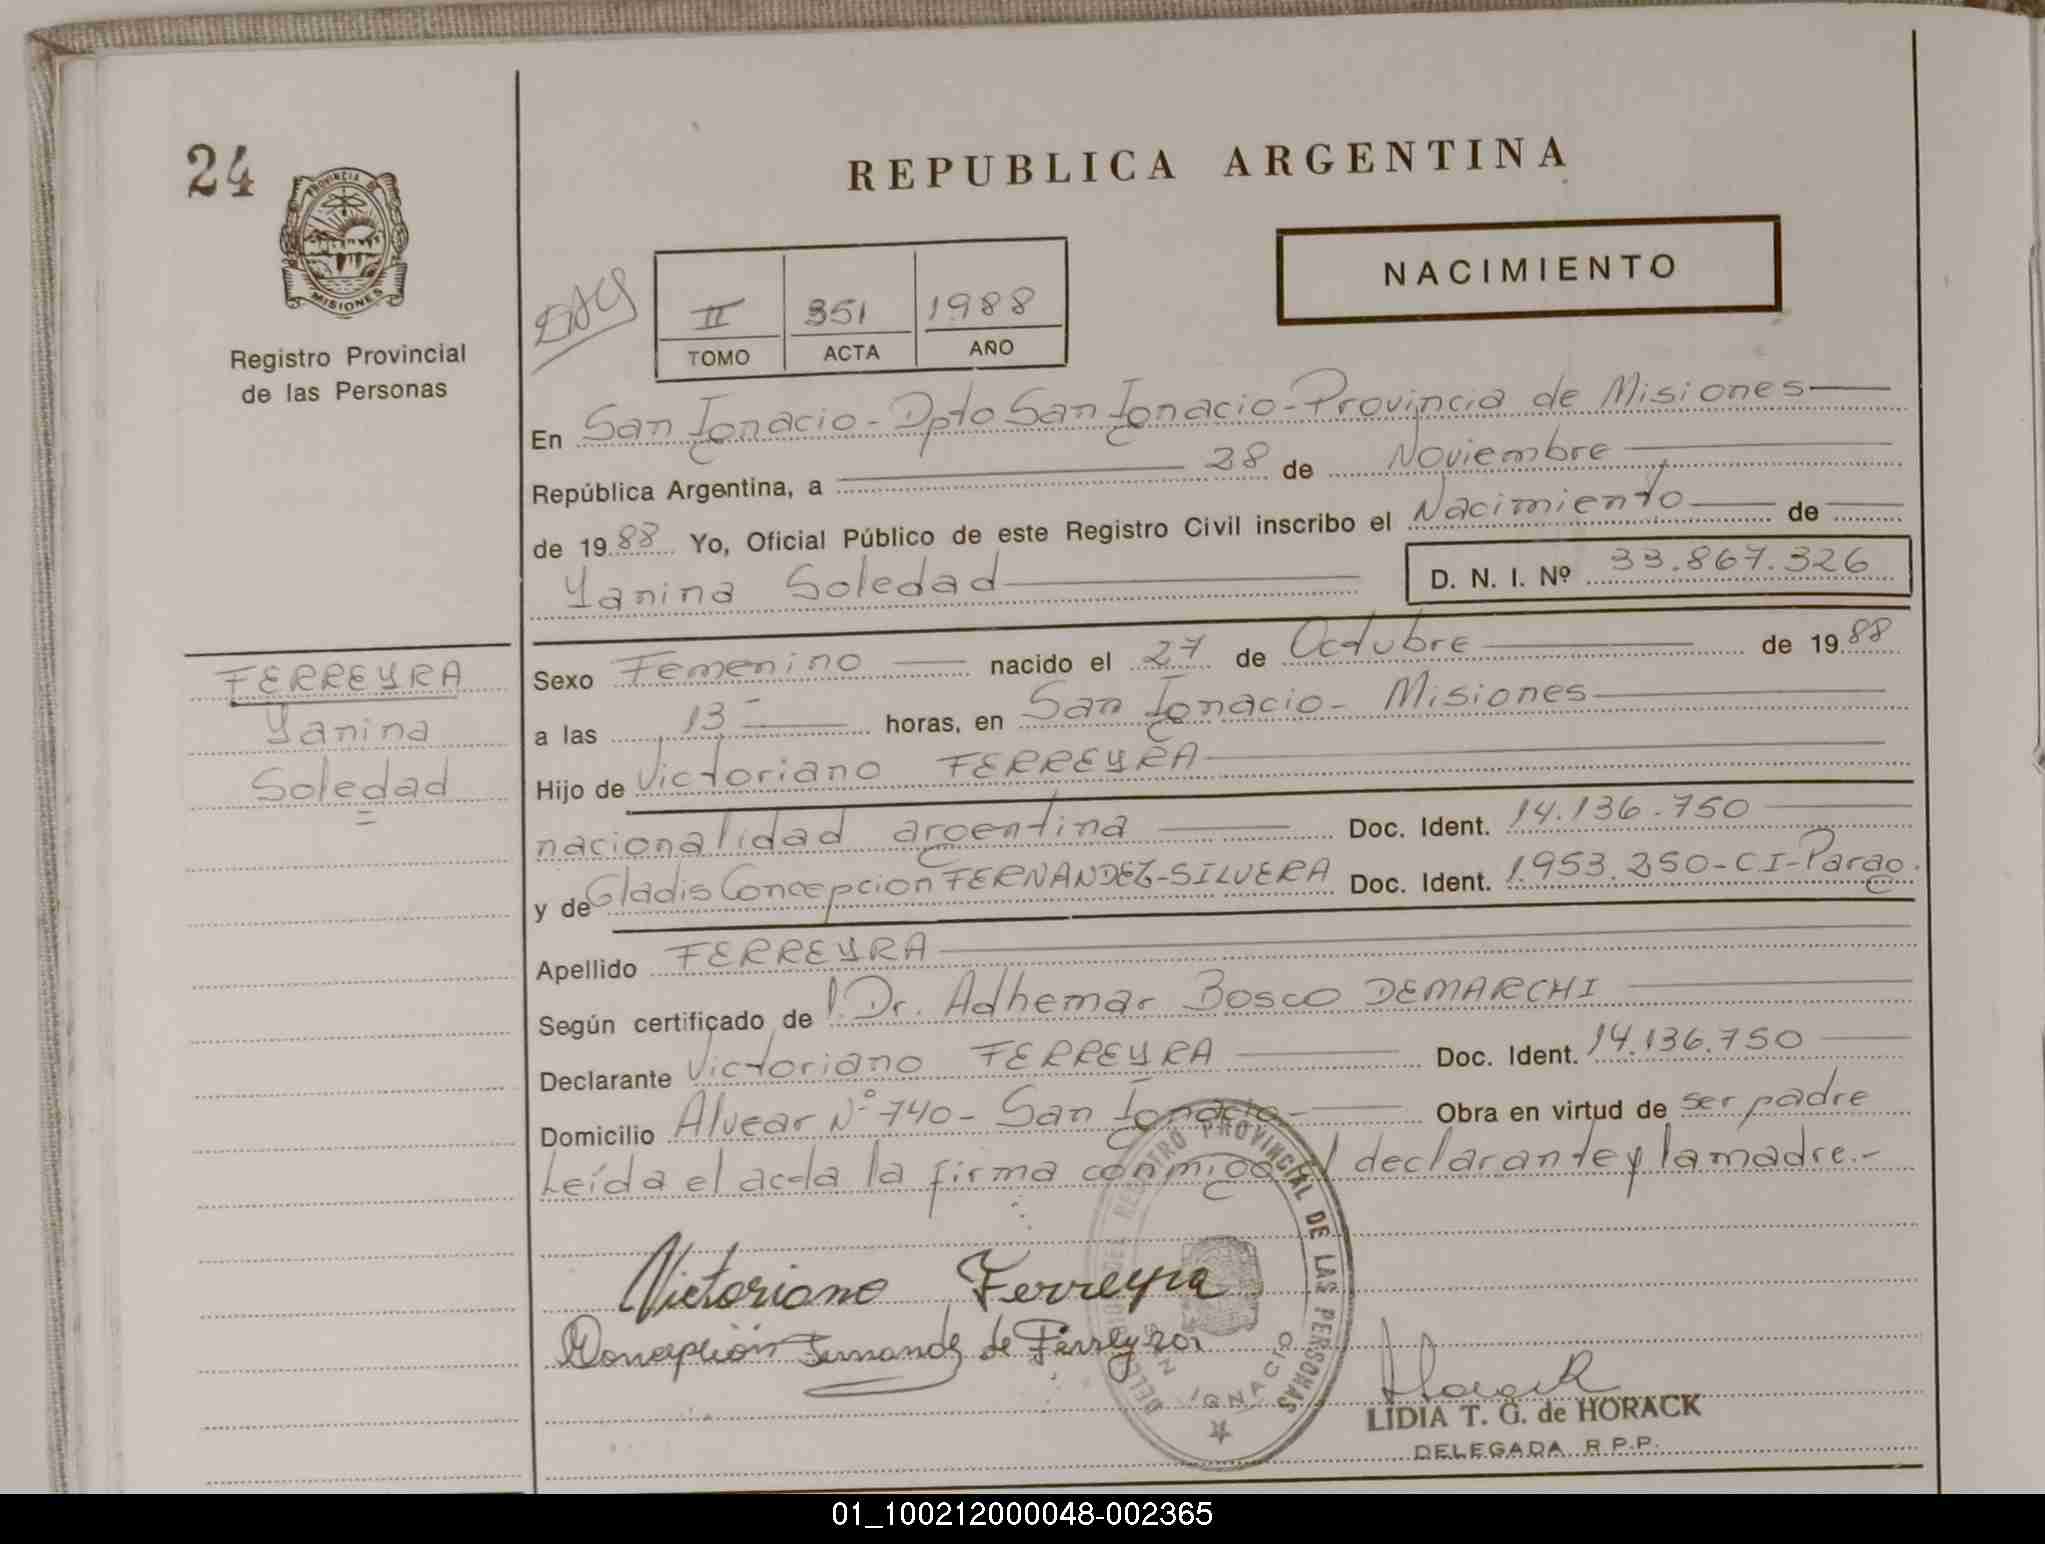 24
PROVINCIA DE
MISIONES
Registro Provincial
de las Personas
REPUBLICA ARGENTINA
NACIMIENTO
II 351 1988
TOMO ACTA AÑO
En San Ignacio - Dpto San Ignacio - Provincia de Misiones
República Argentina, a 28 de Noviembre
de 1988 Yo, Oficial Público de este Registro Civil inscribo el Nacimiento de
Yanina Soledad D. N. I. Nº 33.867.326
FERREYRA
Yanina
Soledad
Sexo Femenino nacido el 27 de Octubre de 1988
a las 13 horas, en San Ignacio - Misiones
Hijo de Victoriano FERREYRA
nacionalidad argentina Doc. Ident. 14.136.750
y de Gladis Concepcion FERNANDEZ-SILVERA Doc. Ident. 1.953.250-CI-Parag.
Apellido FERREYRA
Según certificado de Dr. Adhemar Bosco DEMARCHI
Declarante Victoriano FERREYRA Doc. Ident. 14.136.750
Domicilio Alvear Nº 740 - San Ignacio - Obra en virtud de ser padre
Leída el acta la firma conmigo el declarante y la madre.-
Victoriano Ferreyra
Concepción Fernandez de Ferreyra
DELEGACION DEL REGISTRO PROVINCIAL DE LAS PERSONAS
SAN IGNACIO
Horack
LIDIA T. G. de HORACK
DELEGADA R.P.P.
01_100212000048-002365